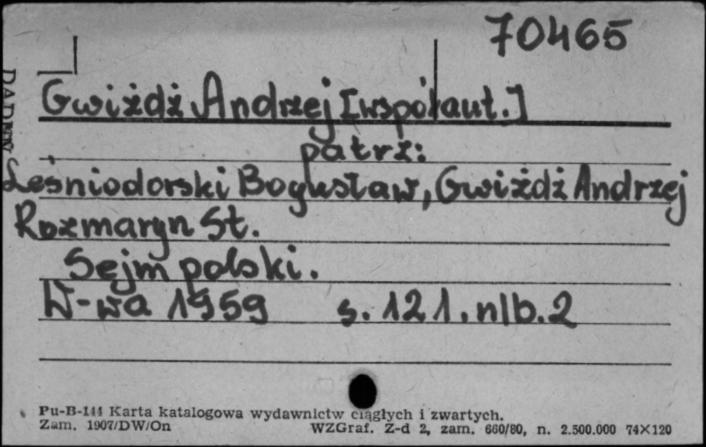 70465
Gwiżdż Andrzej [współaut.]
patrz:
Leśniodorski Bogusław, Gwiżdż Andrzej
Rozmaryn St.
Sejm polski.
W-wa 1959 s. 121. nlb. 2
Pu-B-144 Karta katalogowa wydawnictw ciągłych i zwartych.
Zam. 1907/DW/On WZGraf. Z-d 2, zam. 660/80, n. 2.500.000 74X120